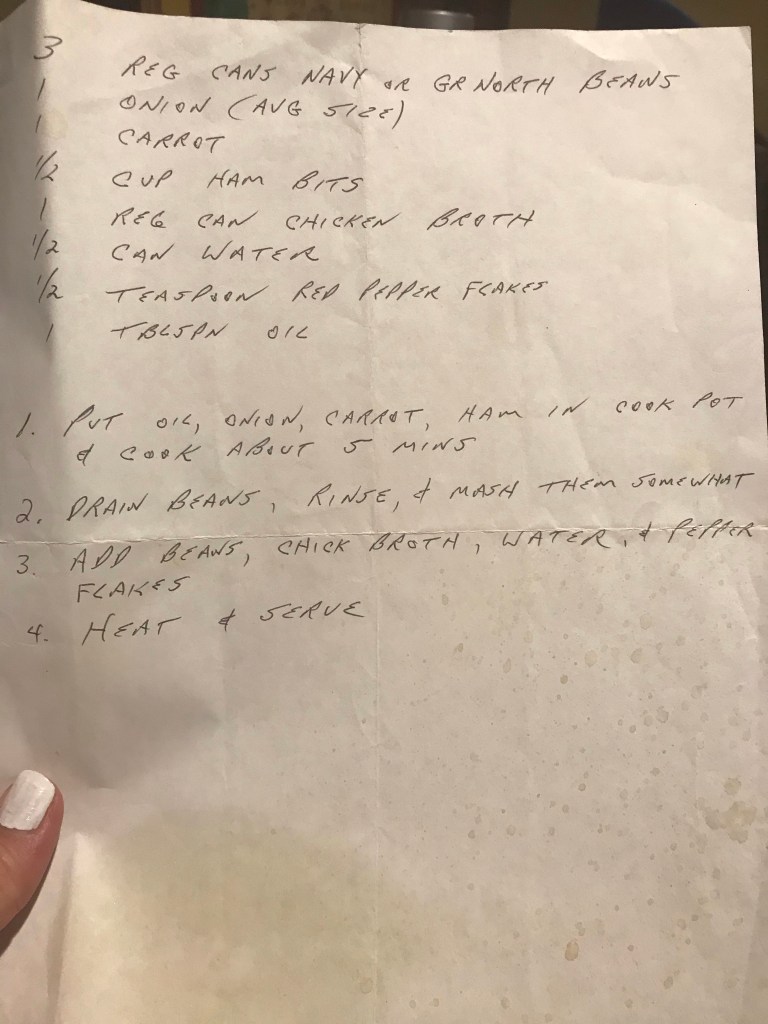 3 REG CANS NAVY OR GR NORTH BEANS
1 ONION (AVG SIZE)
1 CARROT
1/2 CUP HAM BITS
1 REG CAN CHICKEN BROTH
1/2 CAN WATER
1/2 TEASPOON RED PEPPER FLAKES
1 TBLSPN OIL
1. PUT OIL, ONION, CARROT, HAM IN COOK POT
& COOK ABOUT 5 MINS
2. DRAIN BEANS, RINSE, & MASH THEM SOMEWHAT
3. ADD BEANS, CHICK BROTH, WATER, & PEPPER
FLAKES
4. HEAT & SERVE